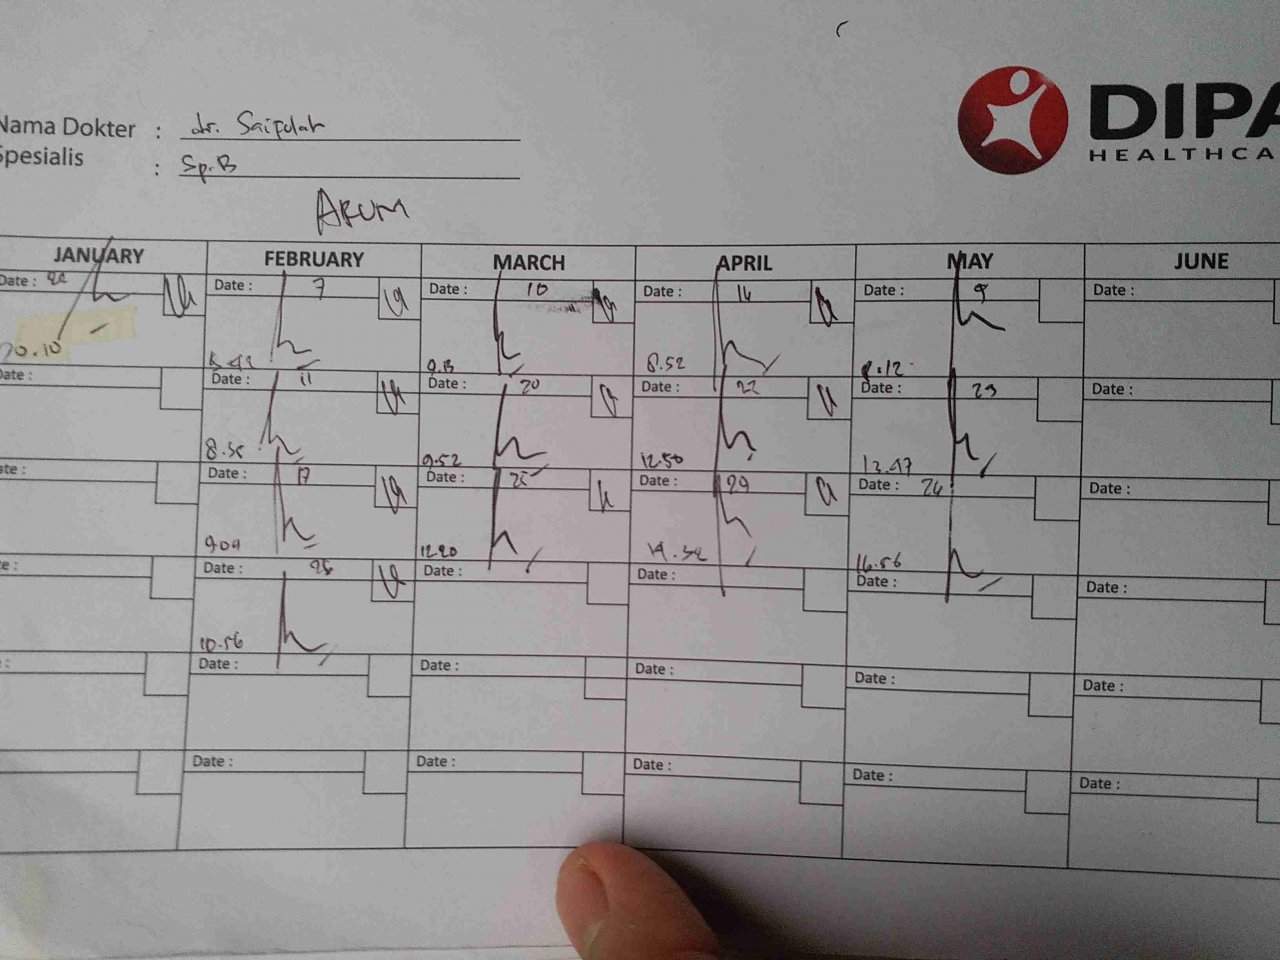 Nama Dokter : dr. Saipulah
Spesialis : Sp.B
DIPA
HEALTHCA
ARUM
JANUARY FEBRUARY MARCH APRIL MAY JUNE
Date : Date : 7 Date : 10 Date : 14 Date : 9 Date :
20.10 9.13 8.52 8.12
Date : Date : 11 Date : 20 Date : 22 Date : 23 Date :
8.58 9.52 12.50 13.47
ate : Date : 17 Date : 25 Date : 29 Date : 24 Date :
9.04 12.20 14.52 16.56
e : Date : 25 Date : Date : Date : Date :
10.56
: Date : Date : Date : Date : Date :
Date : Date : Date : Date : Date :